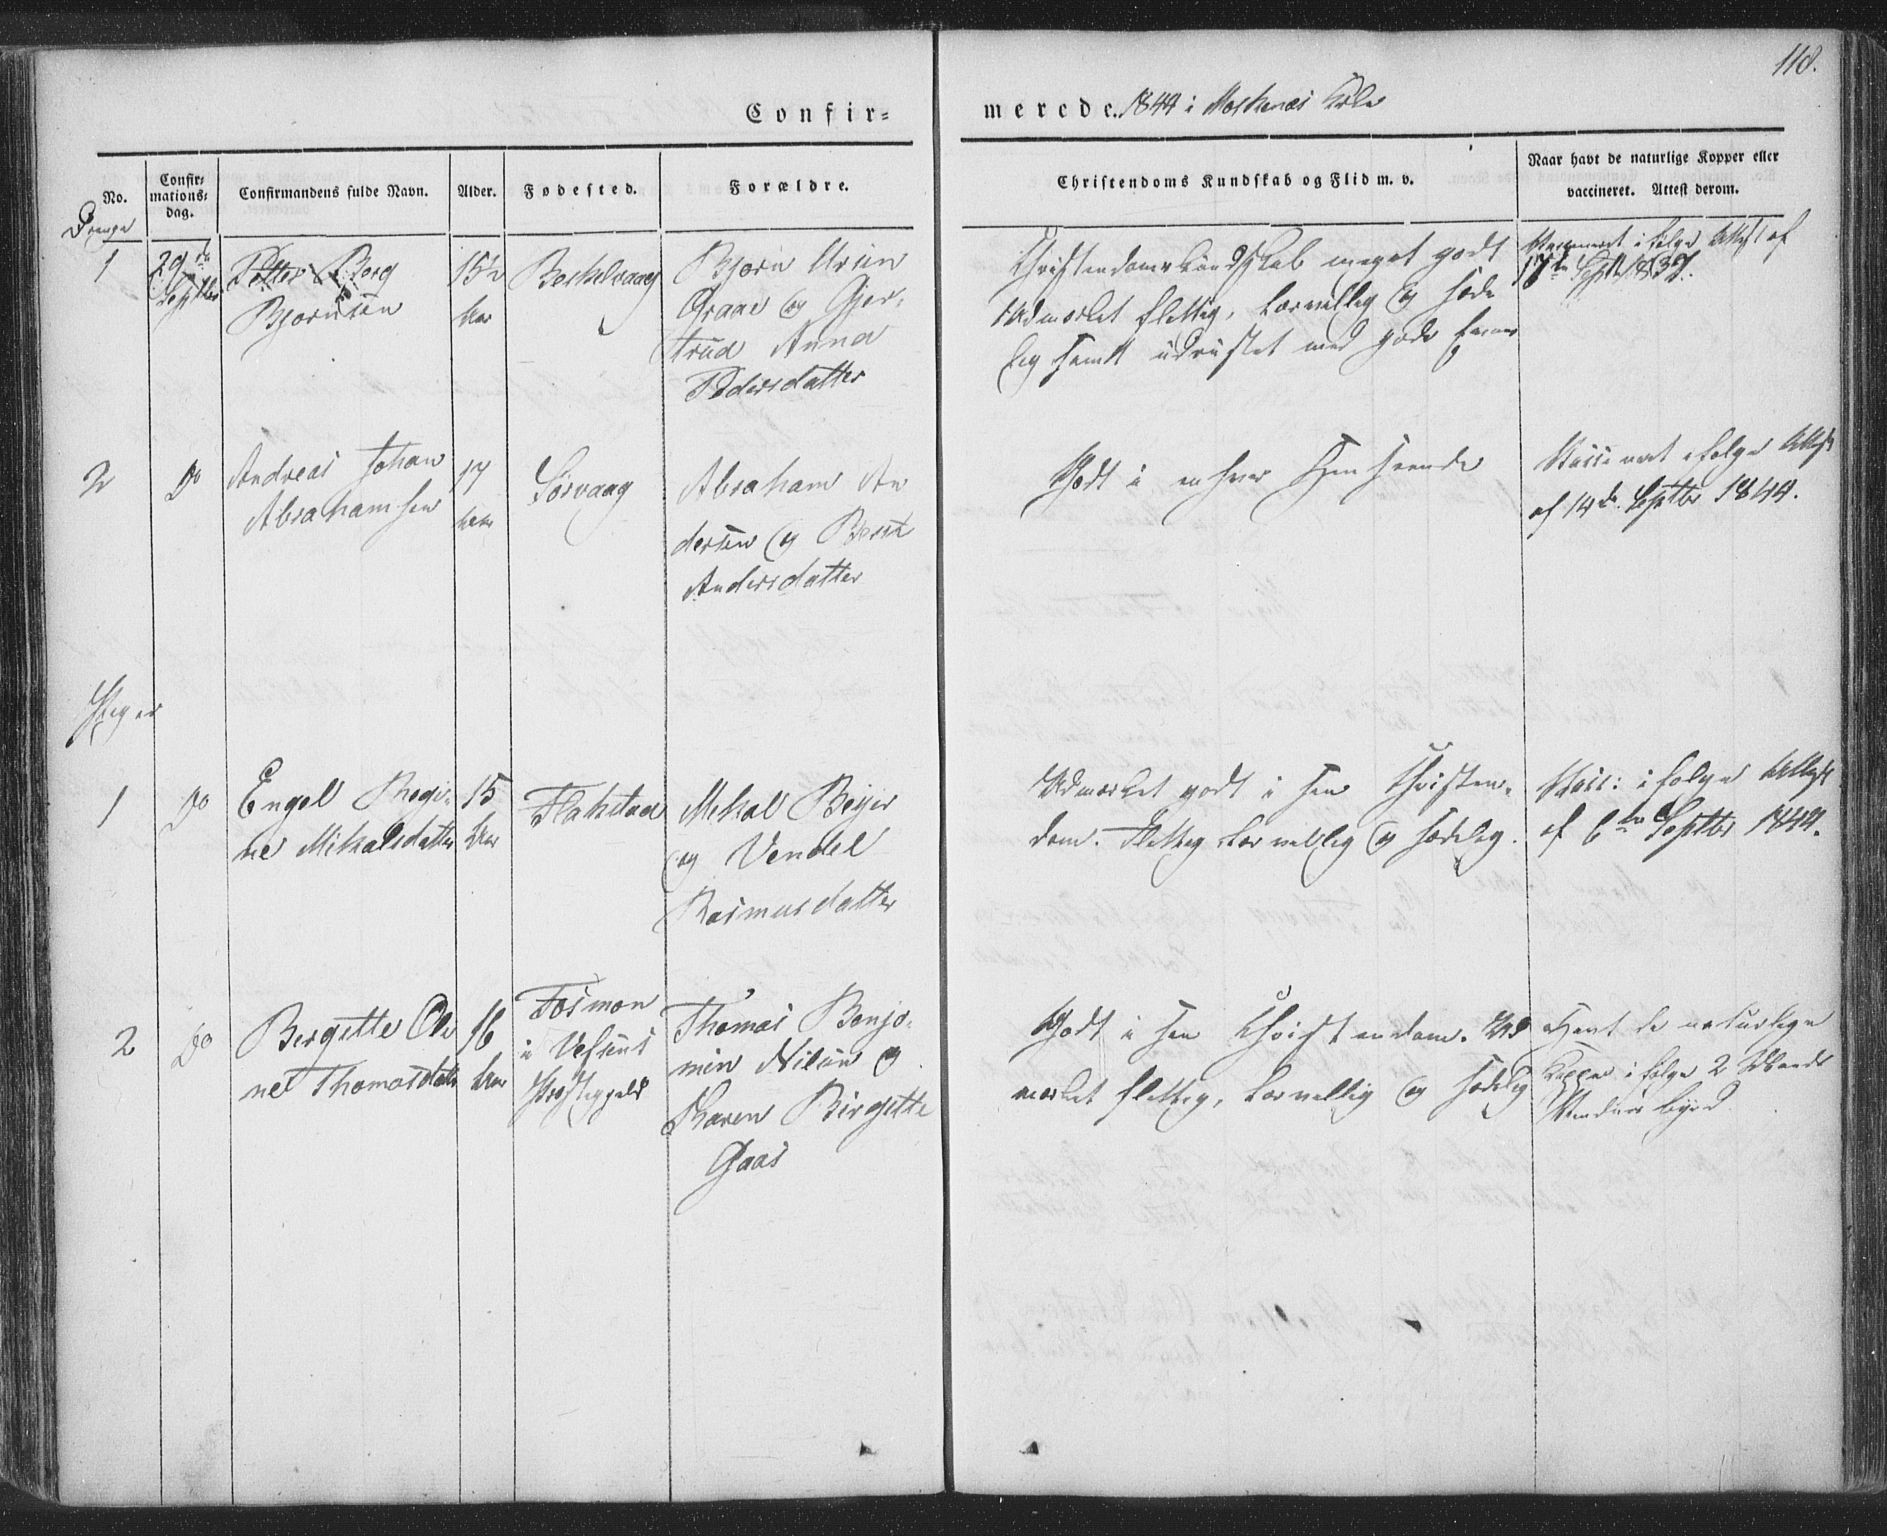 118.
Confirmerede. 1844 i Moskenæs
No.
Confirmationsdag.
Confirmandens fulde Navn.
Alder.
Fødested.
Forældre.
Christendoms Kundskab og Flid m. v.
Naar havt de naturlige Kopper eller
vaccineret. Attest derom.
Drenge
1
29de
Septbr
Petter Berg
Bjørnsen
15½
Aar
Bjørn Urien
Graae og Gjer-
trud Anna
Pedersdatter
Christendomskundskab meget godt
Udmærket flittig, lærvillig og sæde
lig samt udrustet med gode Evner
Vaccineret i følge Attest af
17de Septbr 1837.
2
Do
Andreas Johan
Abrahamsen
17
Aar
Sørvaag
Abraham An
dersen og Berit
Andersdatter
Godt i enhver Henseende
Vaccineret i følge Attest
af 14de Septbr 1844.
Piger
1
Do
Engel Regi-
ne Mikalsdatter
15
Aar
Flakstad
Mikal Beyer
og Vendel
Rasmusdatter
Udmærket godt i sin Christen-
dom. Flittig lærvillig og sædelig.
Vacc: i følge Attest
af 6te Septbr 1844.
2
Do
Bergitte Ole
ne Thomasdatt
16
Aar
i Vefsens
Præstegjeld
Thomas Benja-
min Nilsen og
Karen Birgitte
Gaas
Godt i sin Christendom. Ud
mærket flittig, lærvillig og sædelig
Havt de naturlige
Kopper i følge 2